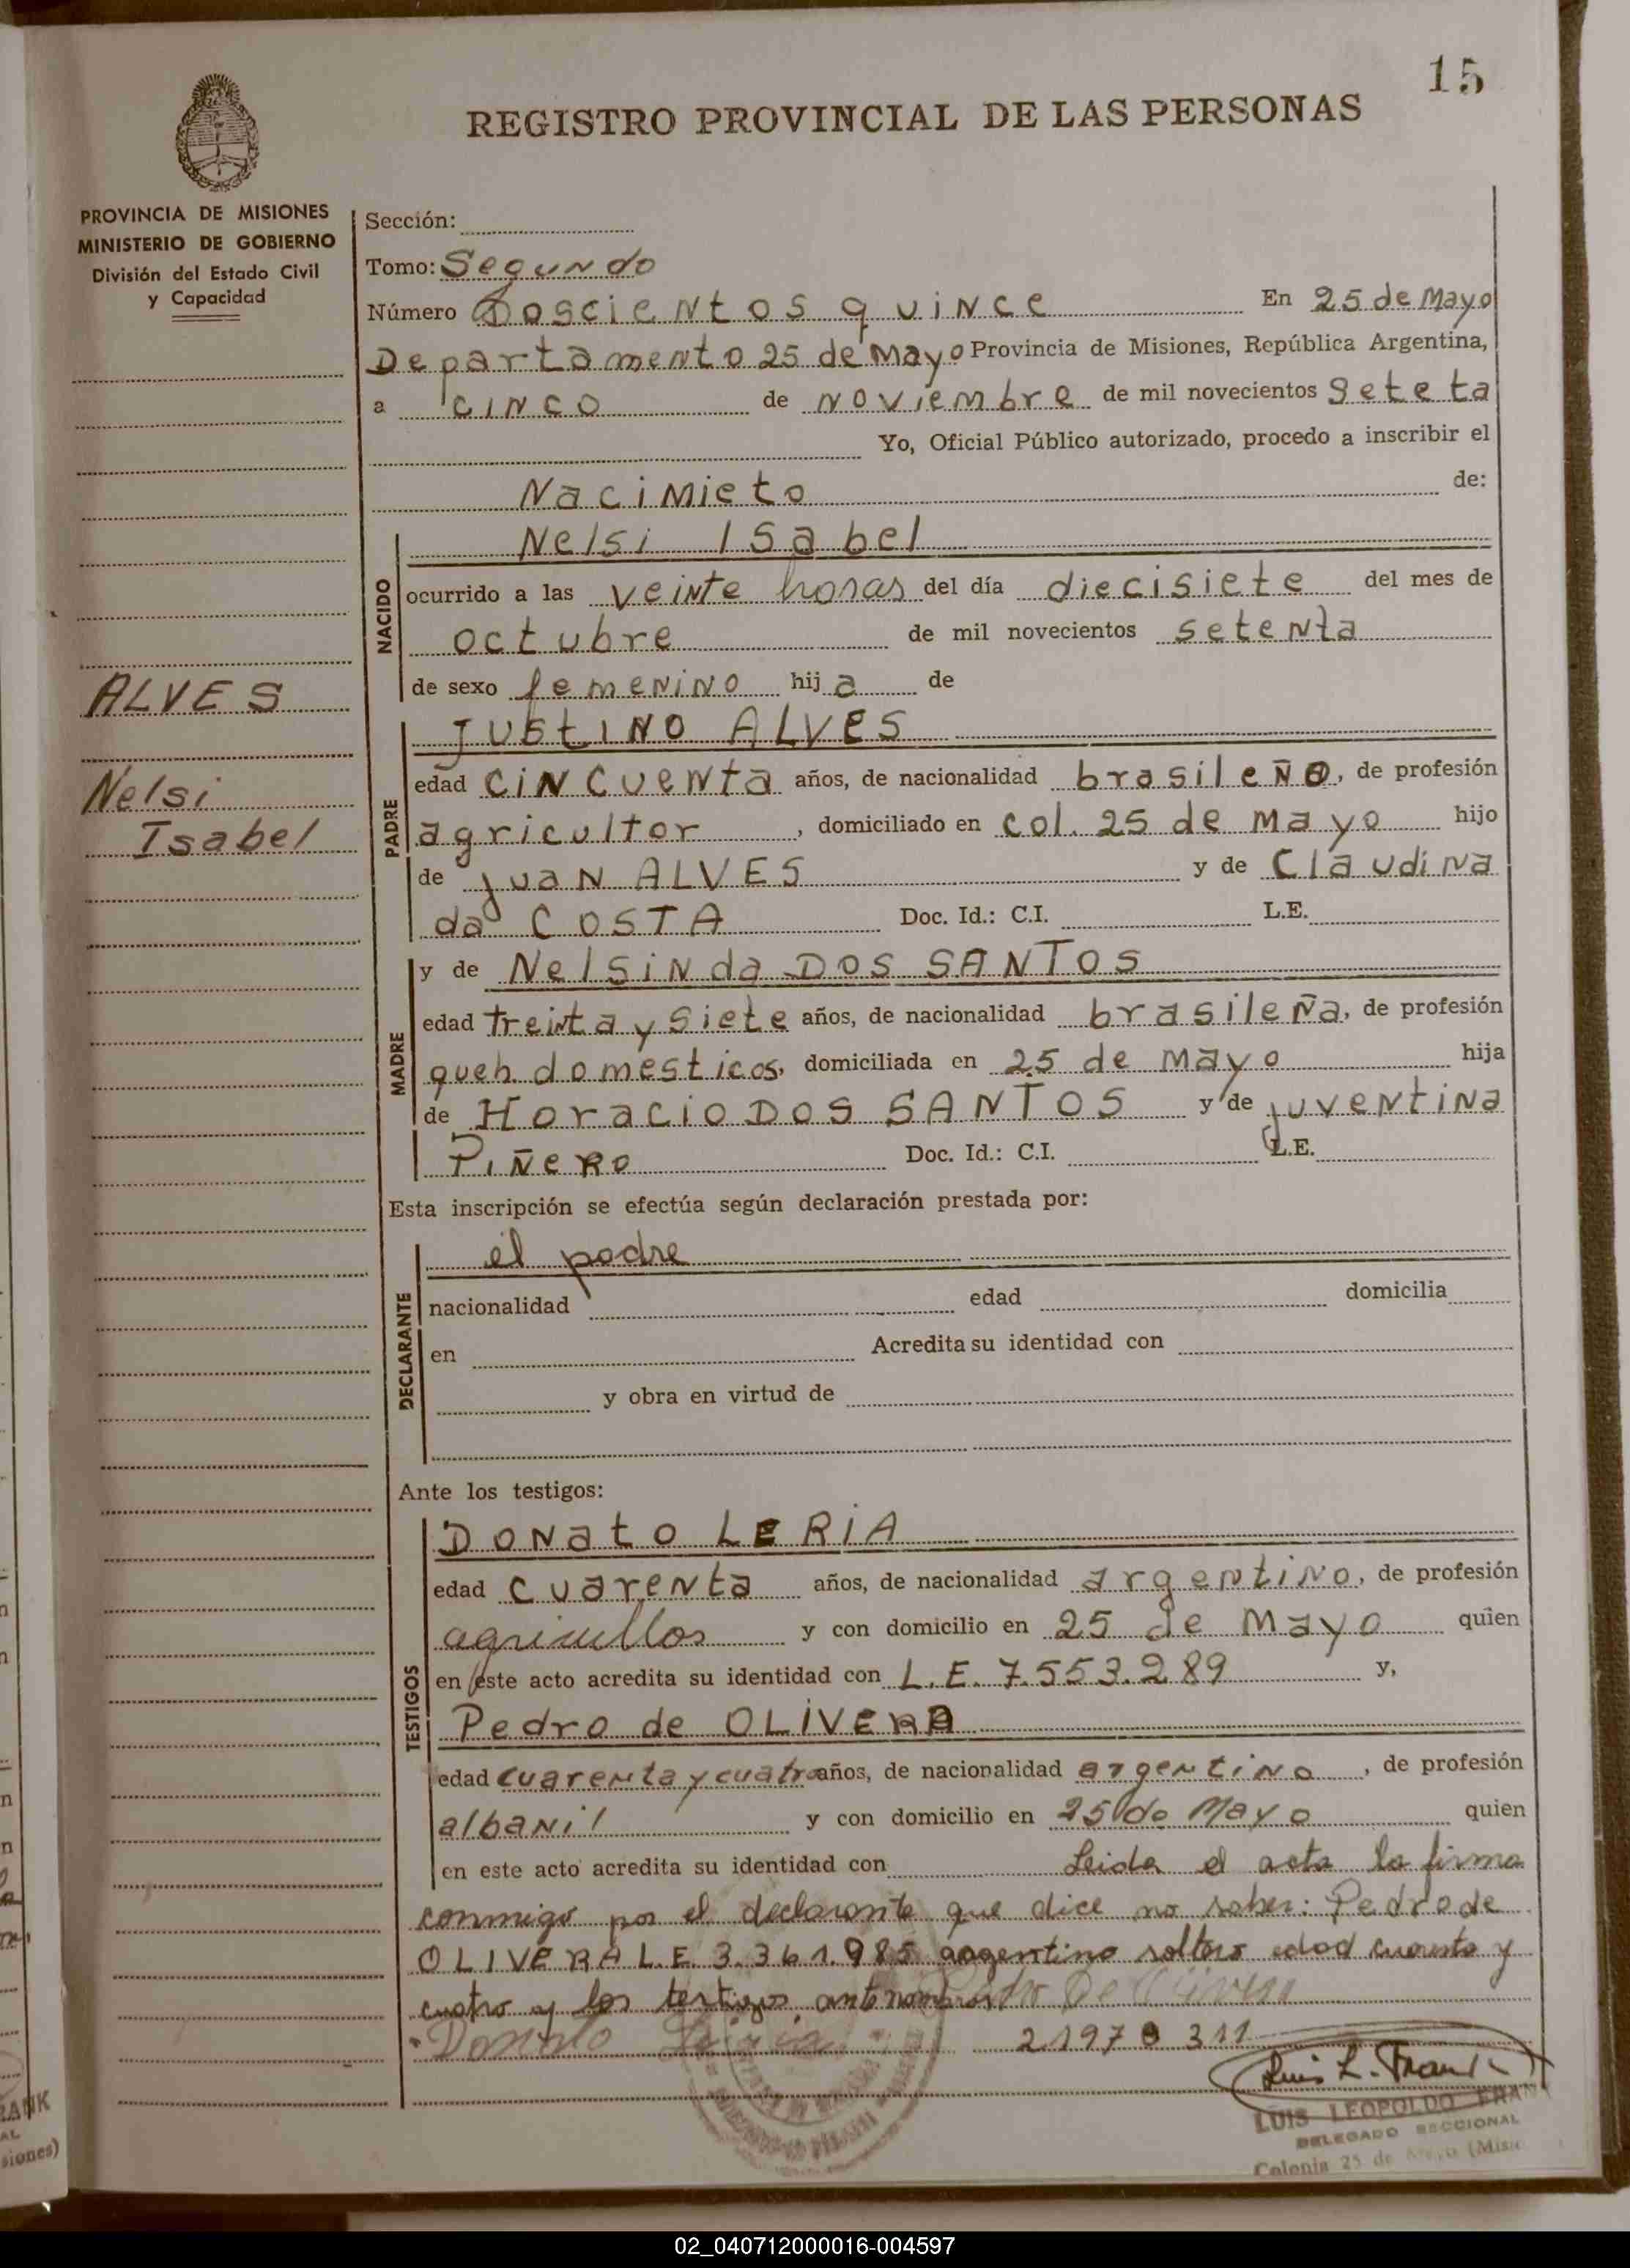 15
REGISTRO PROVINCIAL DE LAS PERSONAS
PROVINCIA DE MISIONES
MINISTERIO DE GOBIERNO
División del Estado Civil
y Capacidad
Sección:
Tomo: Segundo
Número Doscientos quince En 25 de Mayo
Departamento 25 de Mayo Provincia de Misiones, República Argentina,
a cinco de noviembre de mil novecientos Seteta
Yo, Oficial Público autorizado, procedo a inscribir el
Nacimieto de:
NACIDO
Nelsi Isabel
ocurrido a las veinte horas del día diecisiete del mes de
octubre de mil novecientos setenta
de sexo femenino hija de
ALVES
Nelsi
Isabel
PADRE
JUStINO ALVES
edad cincuenta años, de nacionalidad brasileño, de profesión
agricultor, domiciliado en col. 25 de Mayo hijo
de Juan ALVES y de Claudina
da COSTA Doc. Id.: C.I. L.E.
MADRE
y de Nelsinda DOS SANTOS
edad treinta y siete años, de nacionalidad brasileña, de profesión
queh domesticos, domiciliada en 25 de Mayo hija
de Horacio DOS SANTOS y de Juventina
Piñero Doc. Id.: C.I. L.E.
Esta inscripción se efectúa según declaración prestada por:
DECLARANTE
el padre
nacionalidad edad domicilia
en Acredita su identidad con
y obra en virtud de
Ante los testigos:
TESTIGOS
Donato LERIA
edad cuarenta años, de nacionalidad argentino, de profesión
agricultor y con domicilio en 25 de Mayo quien
en este acto acredita su identidad con L.E. 7.553.289 y,
Pedro de OLIVERA
edad cuarenta y cuatro años, de nacionalidad argentino, de profesión
albanil y con domicilio en 25 de Mayo quien
en este acto acredita su identidad con Leida el acta la firma
conmigo por el declarante que dice no saber: Pedro de
OLIVERA L.E. 3.361.985 argentino soltero edad cuarenta y
cuatro y los testigos antenombrados
Donato
21970 311
Luis L. Frank
LUIS LEOPOLDO FRANK
DELEGADO SECCIONAL
Colonia 25 de Mayo (Misio
RANK
AL
siones)
02_040712000016-004597